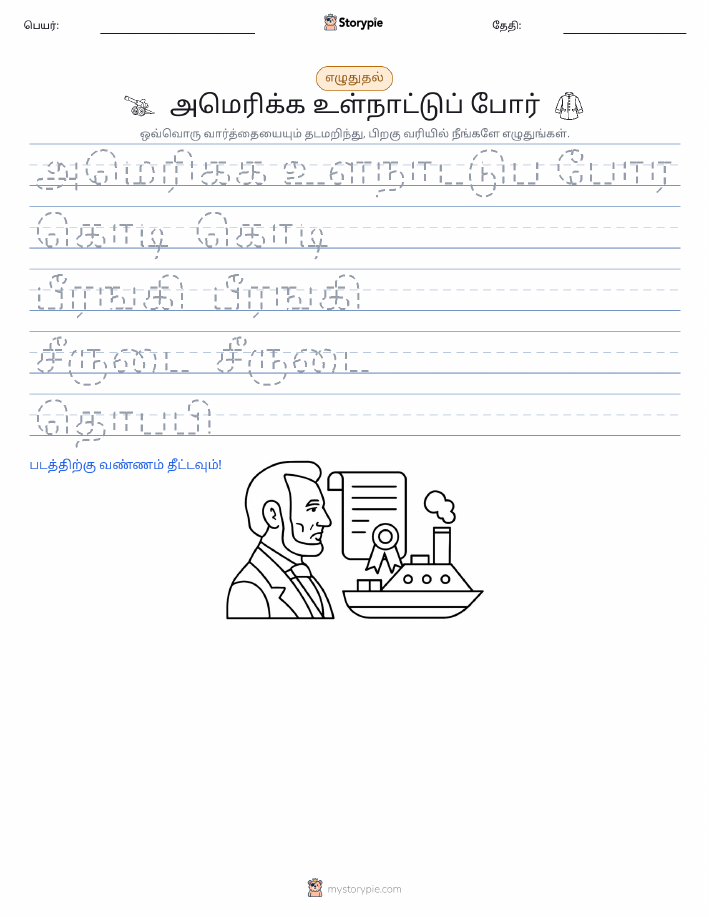 பெயர்:
Storypie
தேதி:
எழுதுதல்
அமெரிக்க உள்நாட்டுப் போர்
ஒவ்வொரு வார்த்தையையும் தடமறிந்து, பிறகு வரியில் நீங்களே எழுதுங்கள்.
அமெரிகக உளநாடடுப போர
கொடி கொடி
பீரஙகி பீரஙகி
சீருடை சீருடை
தொபபி
படத்திற்கு வண்ணம் தீட்டவும்!
mystorypie.com